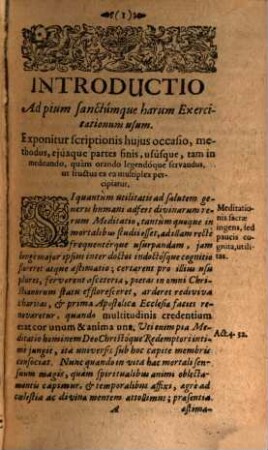 (1)
INTRODUCTIO
Ad pium sanctúmque harum Exerci-
tationum usum.
Exponitur scriptionis hujus occasio, me-
thodus, ejúsque partes finis, usúsque, tam in
meditando, quàm orando legendóque servandus,
ut fructus ex ea multiplex per-
cipiatur.
SI quantum utilitatis ad salutem ge-
neris humani adfert divinarum re-
rum Meditatio, tantum quoque in
mortalibus studii esset, ad illam rectè
frequentérque usurpandam, jam
longè major ipsius inter doctos indoctósque cognitio
foret atque æstimatio; certarent pro illius usu
plures, ferverent asceteria, pietas in omni Chri-
stianorum statu effloresceret, arderet rediviva
charitas, & prima Apostolicæ Ecclesiæ facies reno-
varetur, quando multitudinis credentium
erat cor unum & anima una. Uti enim pia Me-
ditatio hominem Deo Christóque Redemptori inti-
mè jungit, ita universi sub hoc capite membris
consociat. Nunc quando in vita hac mortali sen-
suum magis, quàm spiritualibus animi oblecta-
mentis capimur, & temporalibus affixi, ægrè ad
cælestia ac divina mentem attollimus; præsentia
A
æstima-
Meditatio-
nis sacræ
ingens, sed
paucis co-
gnita, utili-
tas.
Act. 4. 32.